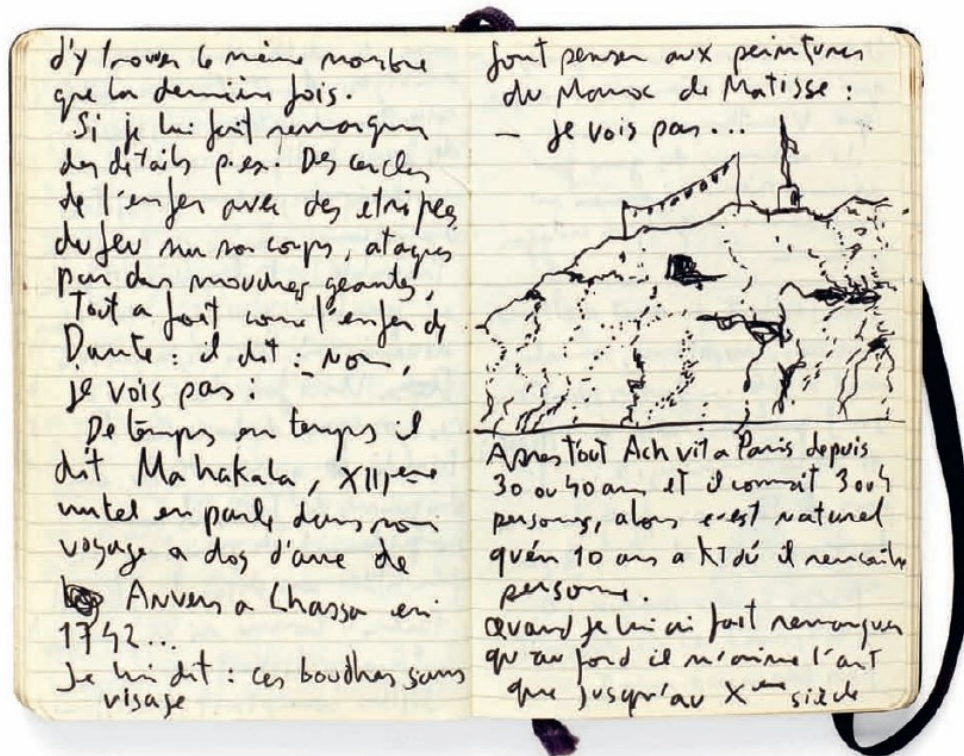 d'y trouver le même nombre
que la dernière fois.
Si je lui fait remarquer
des détails p.ex. Des cercles
de l'enfer avec des etripés,
du feu sur son corps, ataqués
par des mouches geantes,
Tout a fait come l'enfer de
Dante : il dit : – Non,
je vois pas.
De temps en temps il
dit Mahakala, XIIIeme
en parle dans son
voyage a dos d'ane de
Anvers a Lhassa en
1742...
Je lui dit : ces boudhas sans
visage
font penser aux peintures
du Maroc de Matisse :
– je vois pas...
Apres tout Ach vit a Paris depuis
30 ou 40 ans et il connait 3 ou 4
persones, alors c'est naturel
qu'én 10 ans a il rencontre
persone.
Quand je lui ai fait remarquer
qu'au fond il n'aime l'art
que jusqu'au Xeme siècle